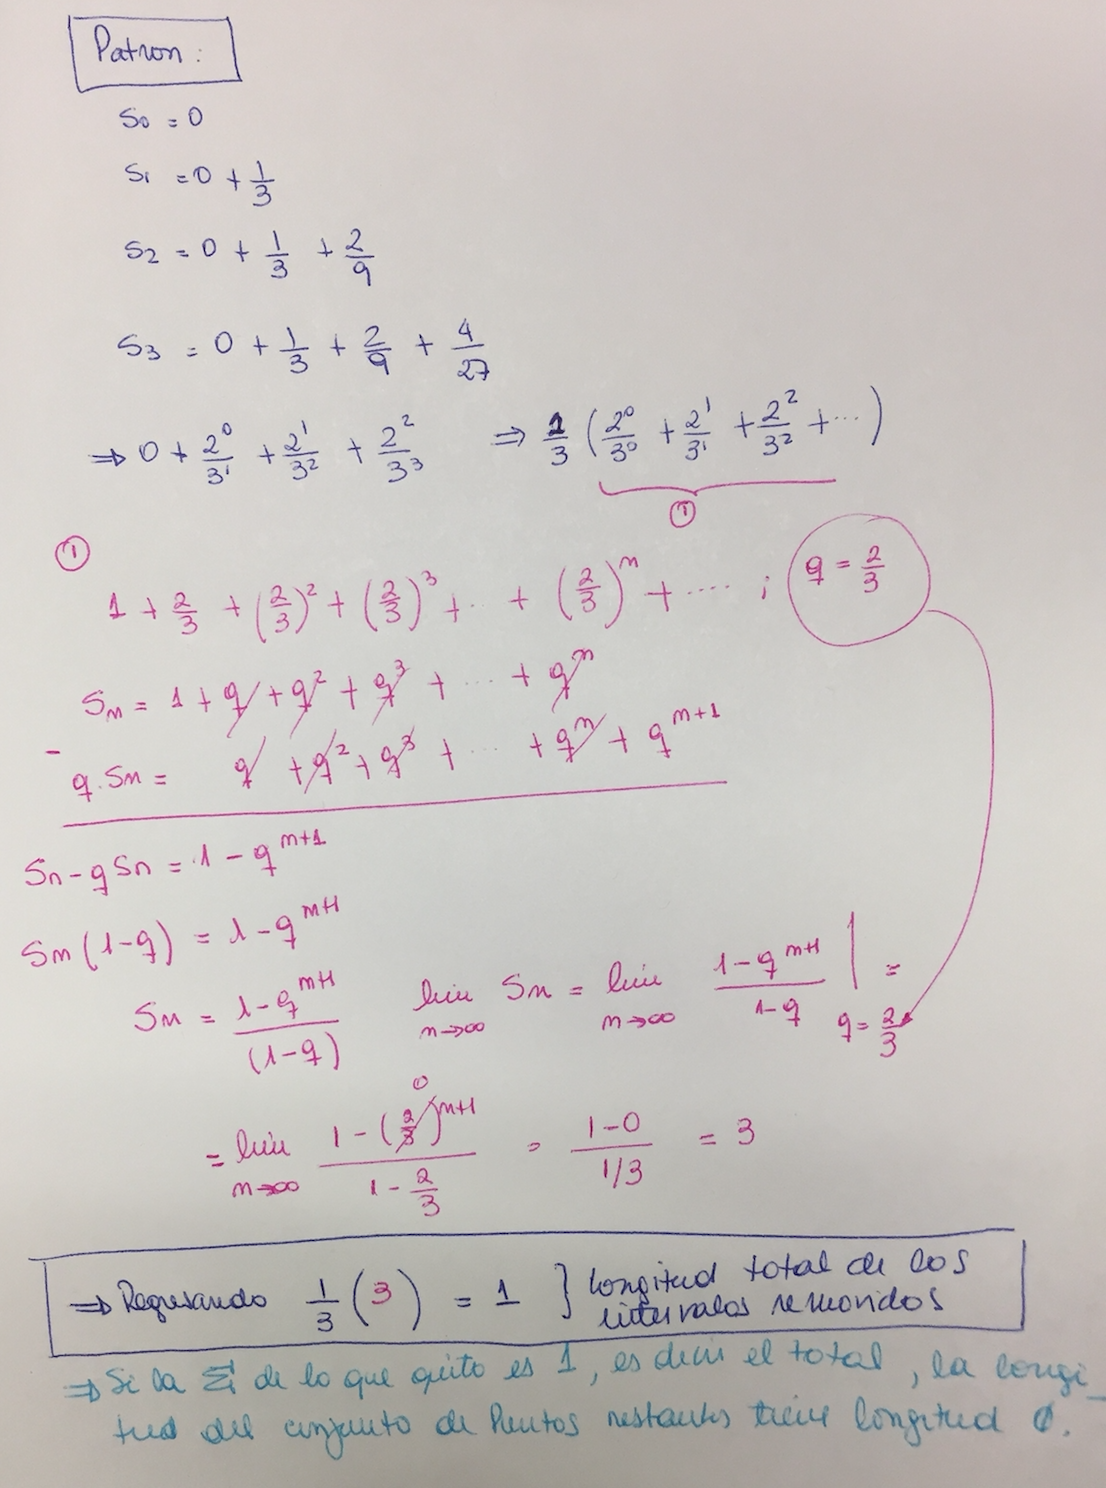 Patron:
S0 = 0
S1 = 0 + 1/3
S2 = 0 + 1/3 + 2/9
S3 = 0 + 1/3 + 2/9 + 4/27
⇒ 0 + 2^0/3^1 + 2^1/3^2 + 2^2/3^3 ⇒ 1/3 (2^0/3^0 + 2^1/3^1 + 2^2/3^2 + ...)
①
①
1 + 2/3 + (2/3)^2 + (2/3)^3 + ... + (2/3)^n + .... ; q = 2/3
Sn = 1 + q + q^2 + q^3 + ... + q^n
- q.Sn = q + q^2 + q^3 + ... + q^n + q^n+1
Sn - qSn = 1 - q^n+1
Sn (1-q) = 1 - q^n+1
Sn = 1-q^n+1/(1-q) lim n→∞ Sn = lim n→∞ 1-q^n+1/1-q | q=2/3 =
= lim n→∞ 1-(2/3)^n+1/1-2/3 0 = 1-0/1/3 = 3
⇒ Regresando 1/3 (3) = 1 } longitud total de los
intervalos removidos
⇒ Si la Σ de lo que quito es 1, es decir el total, la longi-
tud del conjunto de Puntos restantes tiene longitud 0.